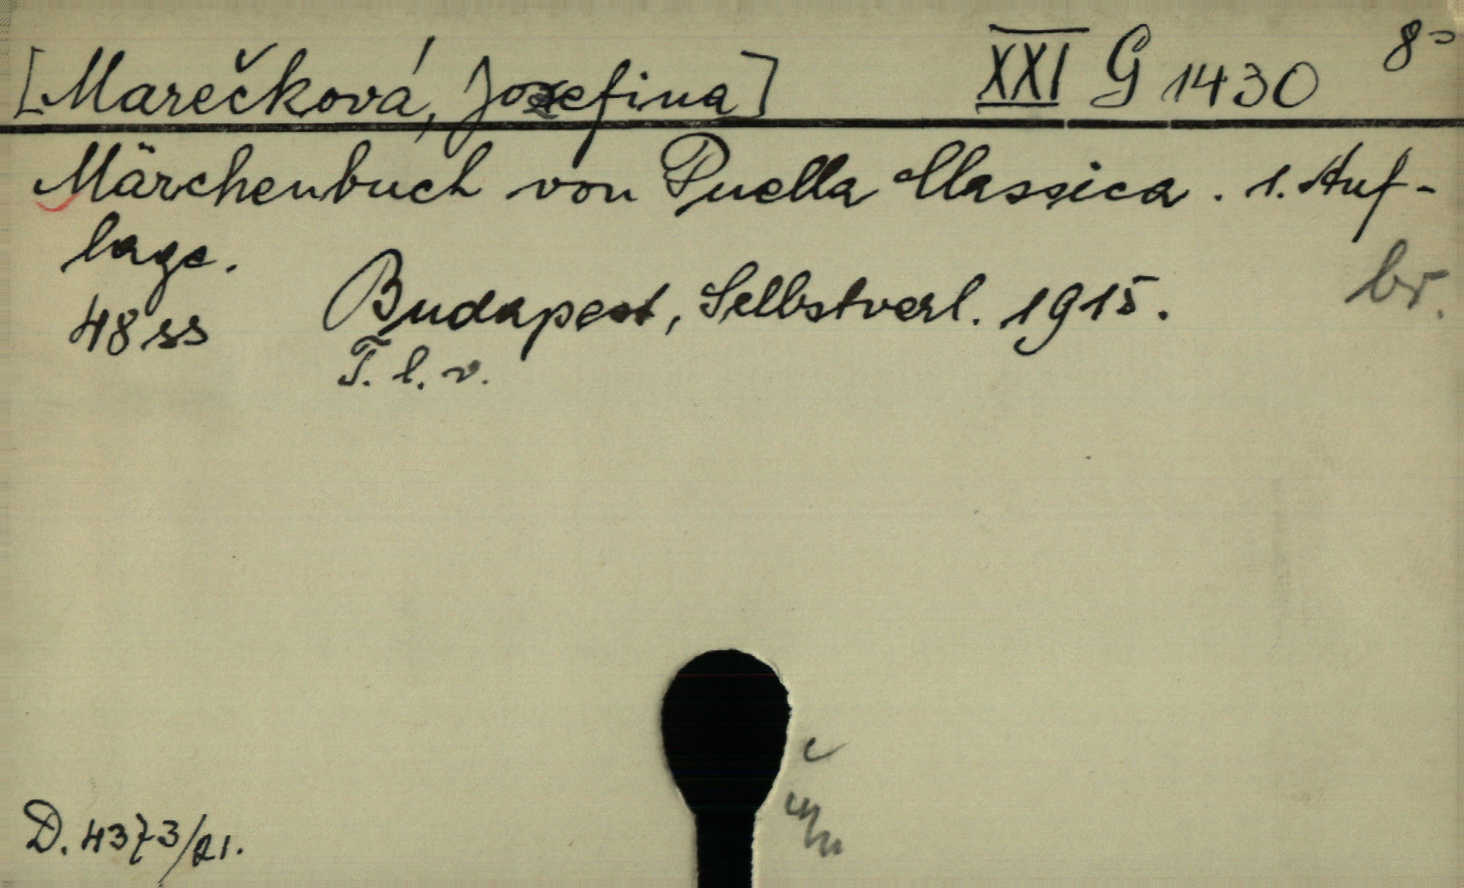 [Marečková, Jozefina] XXI G 1430 8°
Märchenbuch von Puella Classica. 1. Auf-
lage.
48 ss Budapest, Selbstverl. 1915. br.
T. l. v.
D. 4373/21.